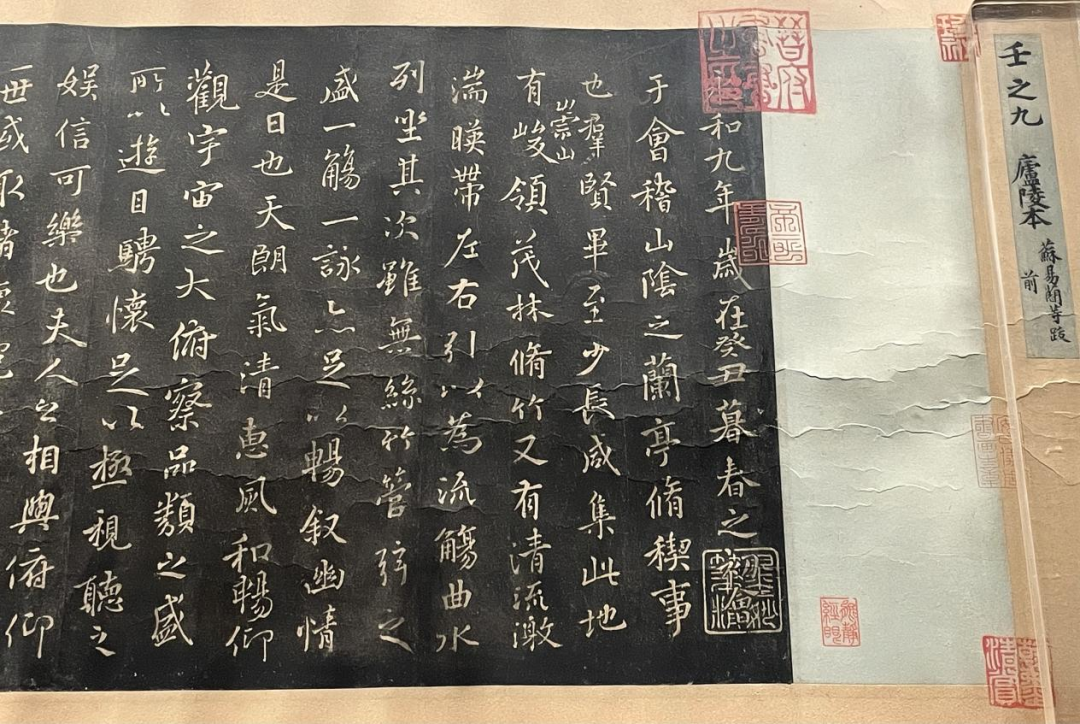 壬之九
廬陵本
蘇易簡等跋
前
和九年歲在癸丑暮春之
于會稽山陰之蘭亭脩稧事
也羣賢畢至少長咸集此地
有崇山峻領茂林脩竹又有清流激
湍暎帶左右引以為流觴曲水
列坐其次雖無絲竹管弦之
盛一觴一詠亦足以暢叙幽情
是日也天朗氣清惠風和暢仰
觀宇宙之大俯察品類之盛
所以遊目騁懷足以極視聽之
娱信可樂也夫人之相與俯仰
世或取諸懷